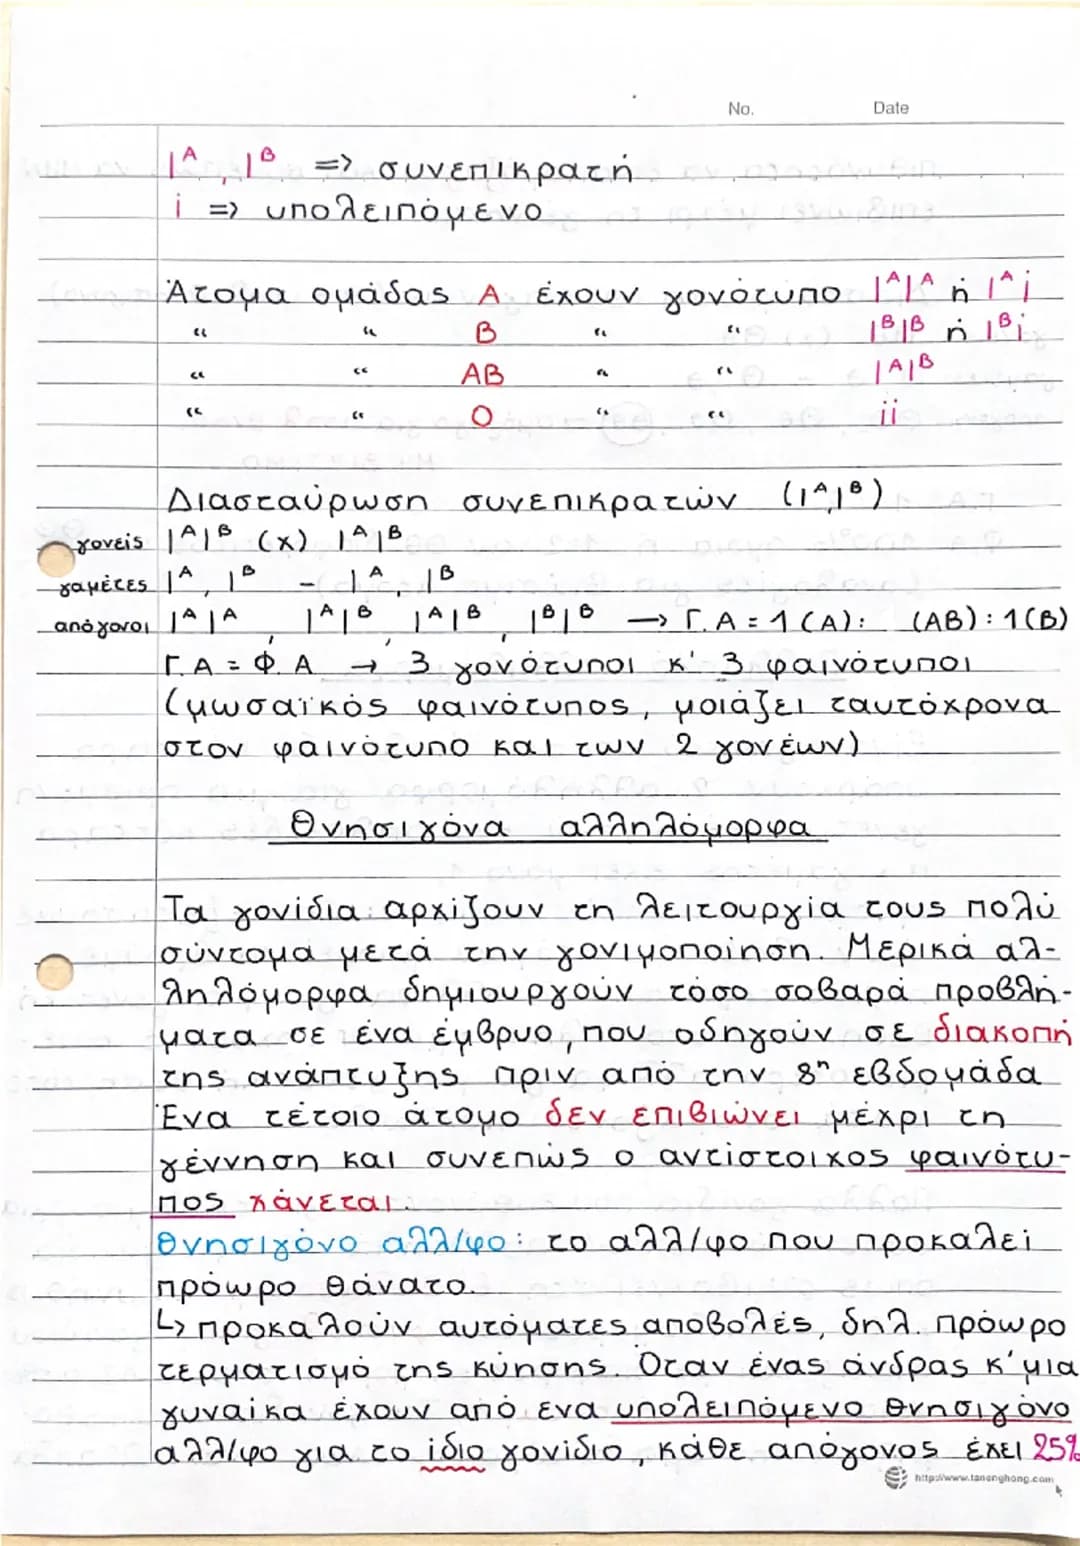 No. Date
Iᴬ, Iᴮ => συνεπικρατή
i => υπολειπόμενο
Άτομα ομάδας A έχουν γονότυπο IᴬIᴬ ή Iᴬi
“ “ B “ “ IᴮIᴮ ή Iᴮi
“ “ AB “ “ IᴬIᴮ
“ “ O “ “ ii
Διασταύρωση συνεπικρατών (Iᴬ,Iᴮ)
γονείς IᴬIᴮ (x) IᴬIᴮ
γαμέτες Iᴬ, Iᴮ - Iᴬ, Iᴮ
απόγονοι IᴬIᴬ, IᴬIᴮ, IᴬIᴮ, IᴮIᴮ → Γ.Α = 1 (A): (AB) : 1(B)
Γ.Α = Φ.Α → 3 γονότυποι κ' 3 φαινότυποι
(μωσαϊκός φαινότυπος, μοιάζει ταυτόχρονα
στον φαινότυπο και των 2 γονέων)
Θνησιγόνα αλληλόμορφα
Τα γονίδια αρχίζουν τη λειτουργία τους πολύ
σύντομα μετά την γονιμοποίηση. Μερικά αλ-
ληλόμορφα δημιουργούν τόσο σοβαρά προβλή-
ματα σε ένα έμβρυο, που οδηγούν σε διακοπή
της ανάπτυξης πριν από την 8η εβδομάδα
Ένα τέτοιο άτομο δεν επιβιώνει μέχρι τη
γέννηση και συνεπώς ο αντίστοιχος φαινότυ-
πος χάνεται.
Θνησιγόνο αλλ/φο: το αλλ/φο που προκαλεί
πρόωρο θάνατο.
↳ προκαλούν αυτόματες αποβολές, δηλ. πρόωρο
τερματισμό της κύησης. Όταν ένας άνδρας κ' μια
γυναίκα έχουν από ένα υπολειπόμενο θνησιγόνο
αλλ/φο για το ίδιο γονίδιο, κάθε απόγονος έχει 25%
http://www.tanenghong.com